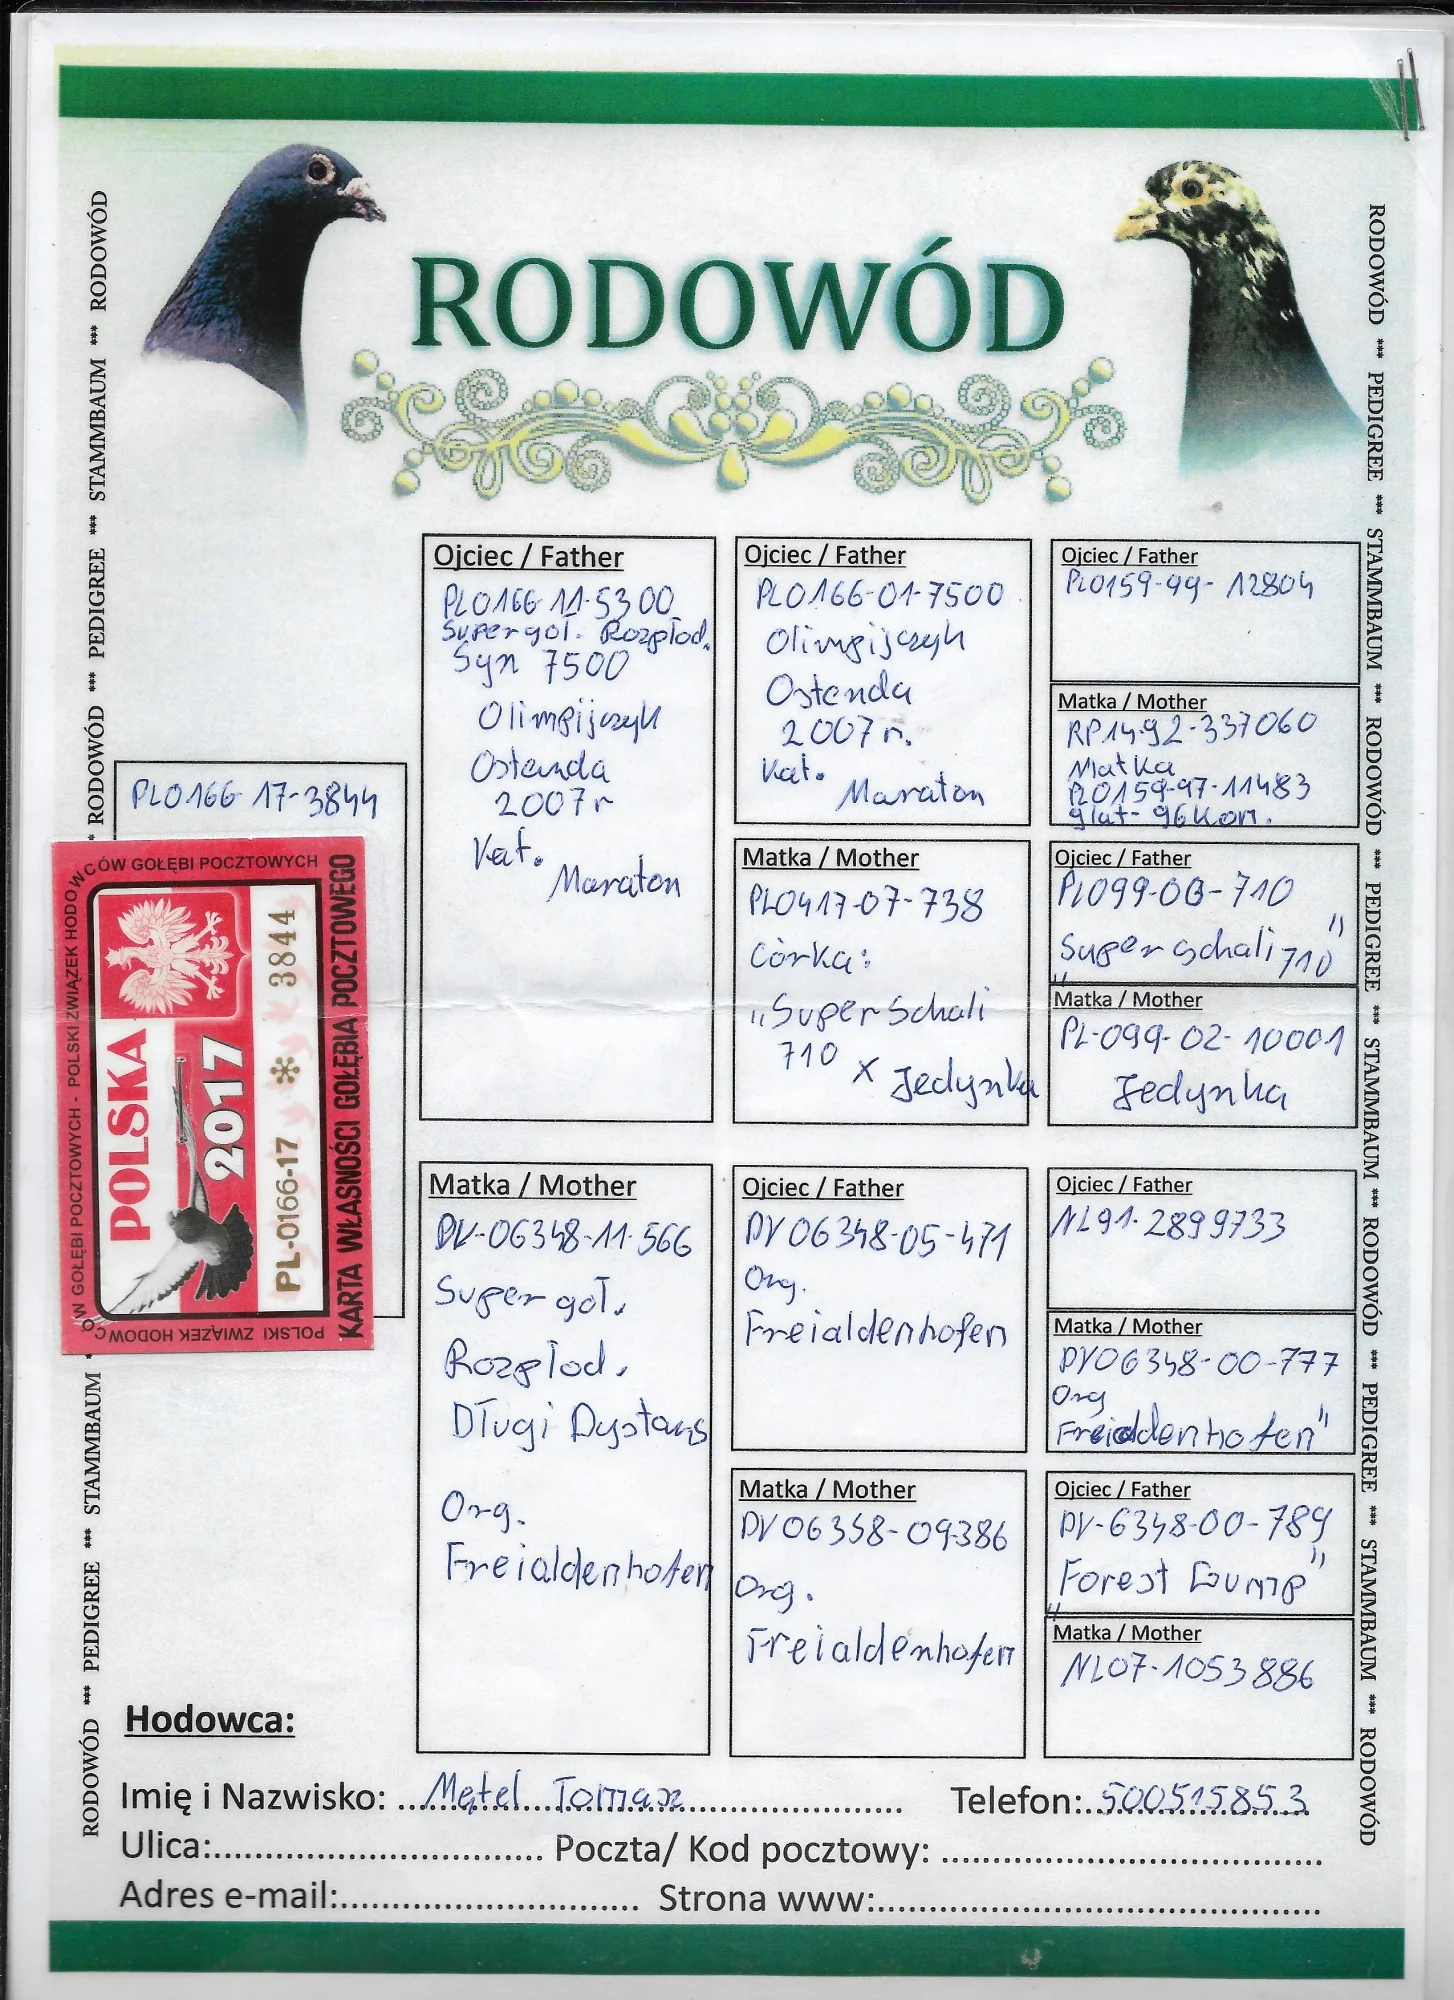 RODOWÓD
RODOWÓD *** PEDIGREE *** STAMMBAUM *** RODOWÓD *** PEDIGREE *** STAMMBAUM *** RODOWÓD
RODOWÓD *** PEDIGREE *** STAMMBAUM *** RODOWÓD *** PEDIGREE *** STAMMBAUM *** RODOWÓD *** PEDIGREE *** STAMMBAUM *** RODOWÓD
PL0166 17-3844
POLSKI ZWIĄZEK HODOWCÓW GOŁĘBI POCZTOWYCH
POLSKA
2017
PL-0166-17 * 3844
KARTA WŁASNOŚCI GOŁĘBIA POCZTOWEGO
Ojciec / Father
PL0166-11-5300
Supergoł. Rozpłod.
Syn 7500
Olimpijczyk
Ostenda
2007r
Kat.
Maraton
Matka / Mother
DV-06348-11-566
Super goł.
Rozpłod.
Długi Dystans
Org.
Freialdenhofen
Ojciec / Father
PL0166-01-7500
Olimpijczyk
Ostenda
2007r.
Kat.
Maraton
Matka / Mother
PL0417-07-738
Córka:
„Super Schali
710 x Jedynka
Ojciec / Father
DV06348-05-471
Org.
Freialdenhofen
Matka / Mother
DV06358-09386
Org.
Freialdenhofen
Ojciec / Father
PL0159-99-12804
Matka / Mother
RP14-92-337060
Matka
PL0159-97-11483
9lat-96Kon.
Ojciec / Father
PL099-08-710
„Super schali 710"
Matka / Mother
PL-099-02-10001
Jedynka
Ojciec / Father
NL91-2899733
Matka / Mother
DV06348-00-777
Org
Freialdenhofen"
Ojciec / Father
DV-6348-00-789
„Forest Gump"
Matka / Mother
NL07-1053886
Hodowca:
Imię i Nazwisko: Mętel Tomasz Telefon: 500515853
Ulica: Poczta/ Kod pocztowy:
Adres e-mail: Strona www: